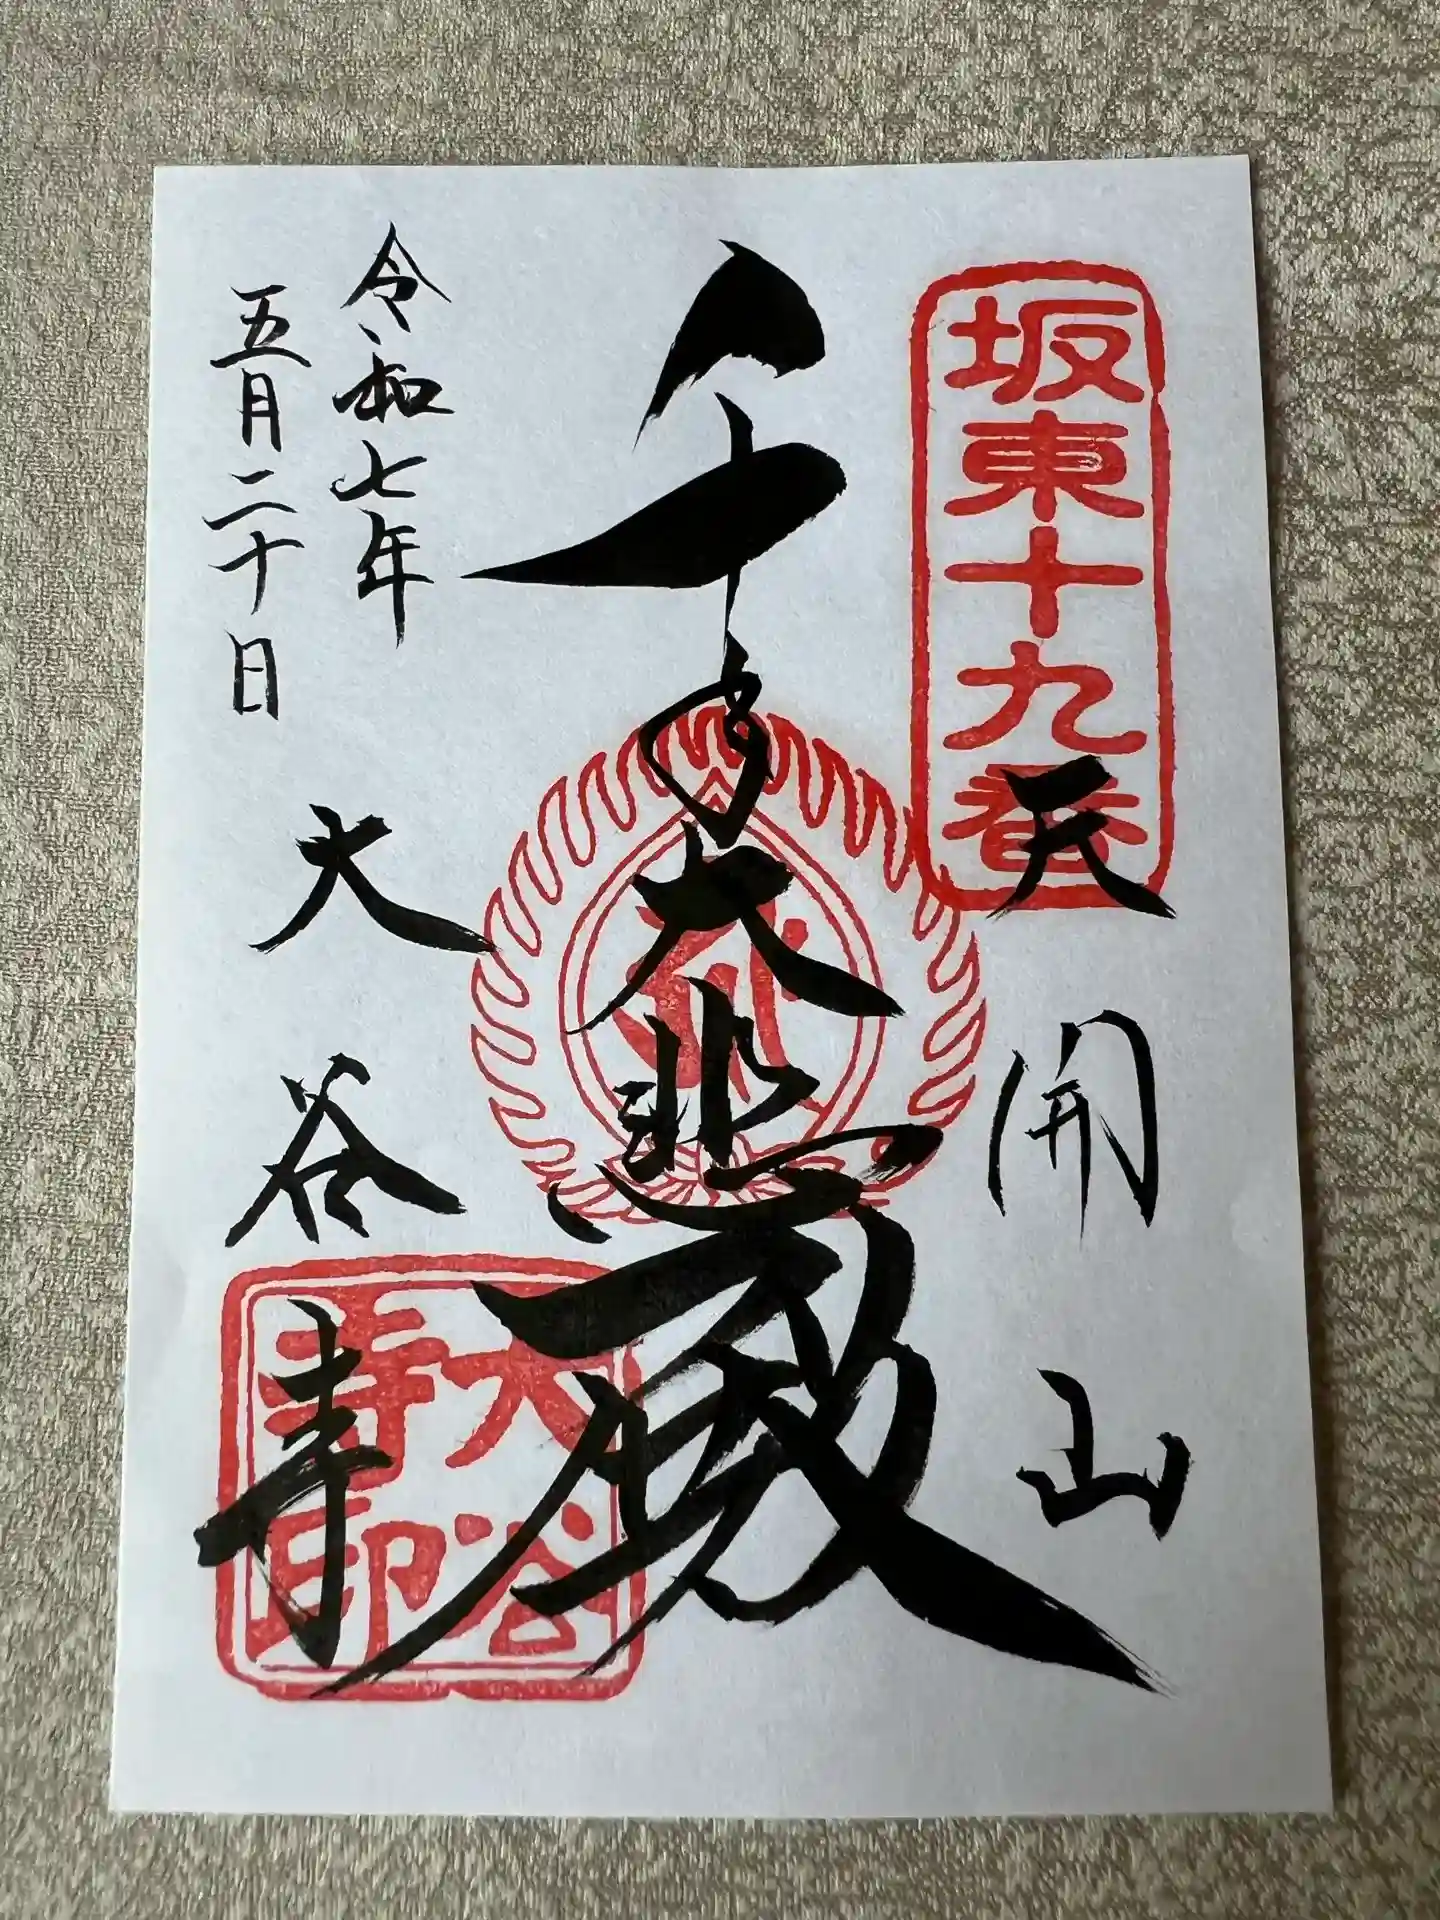 坂東十九番
天開山
千手大悲殿
令和七年
五月二十日
大谷寺
大谷
寺印